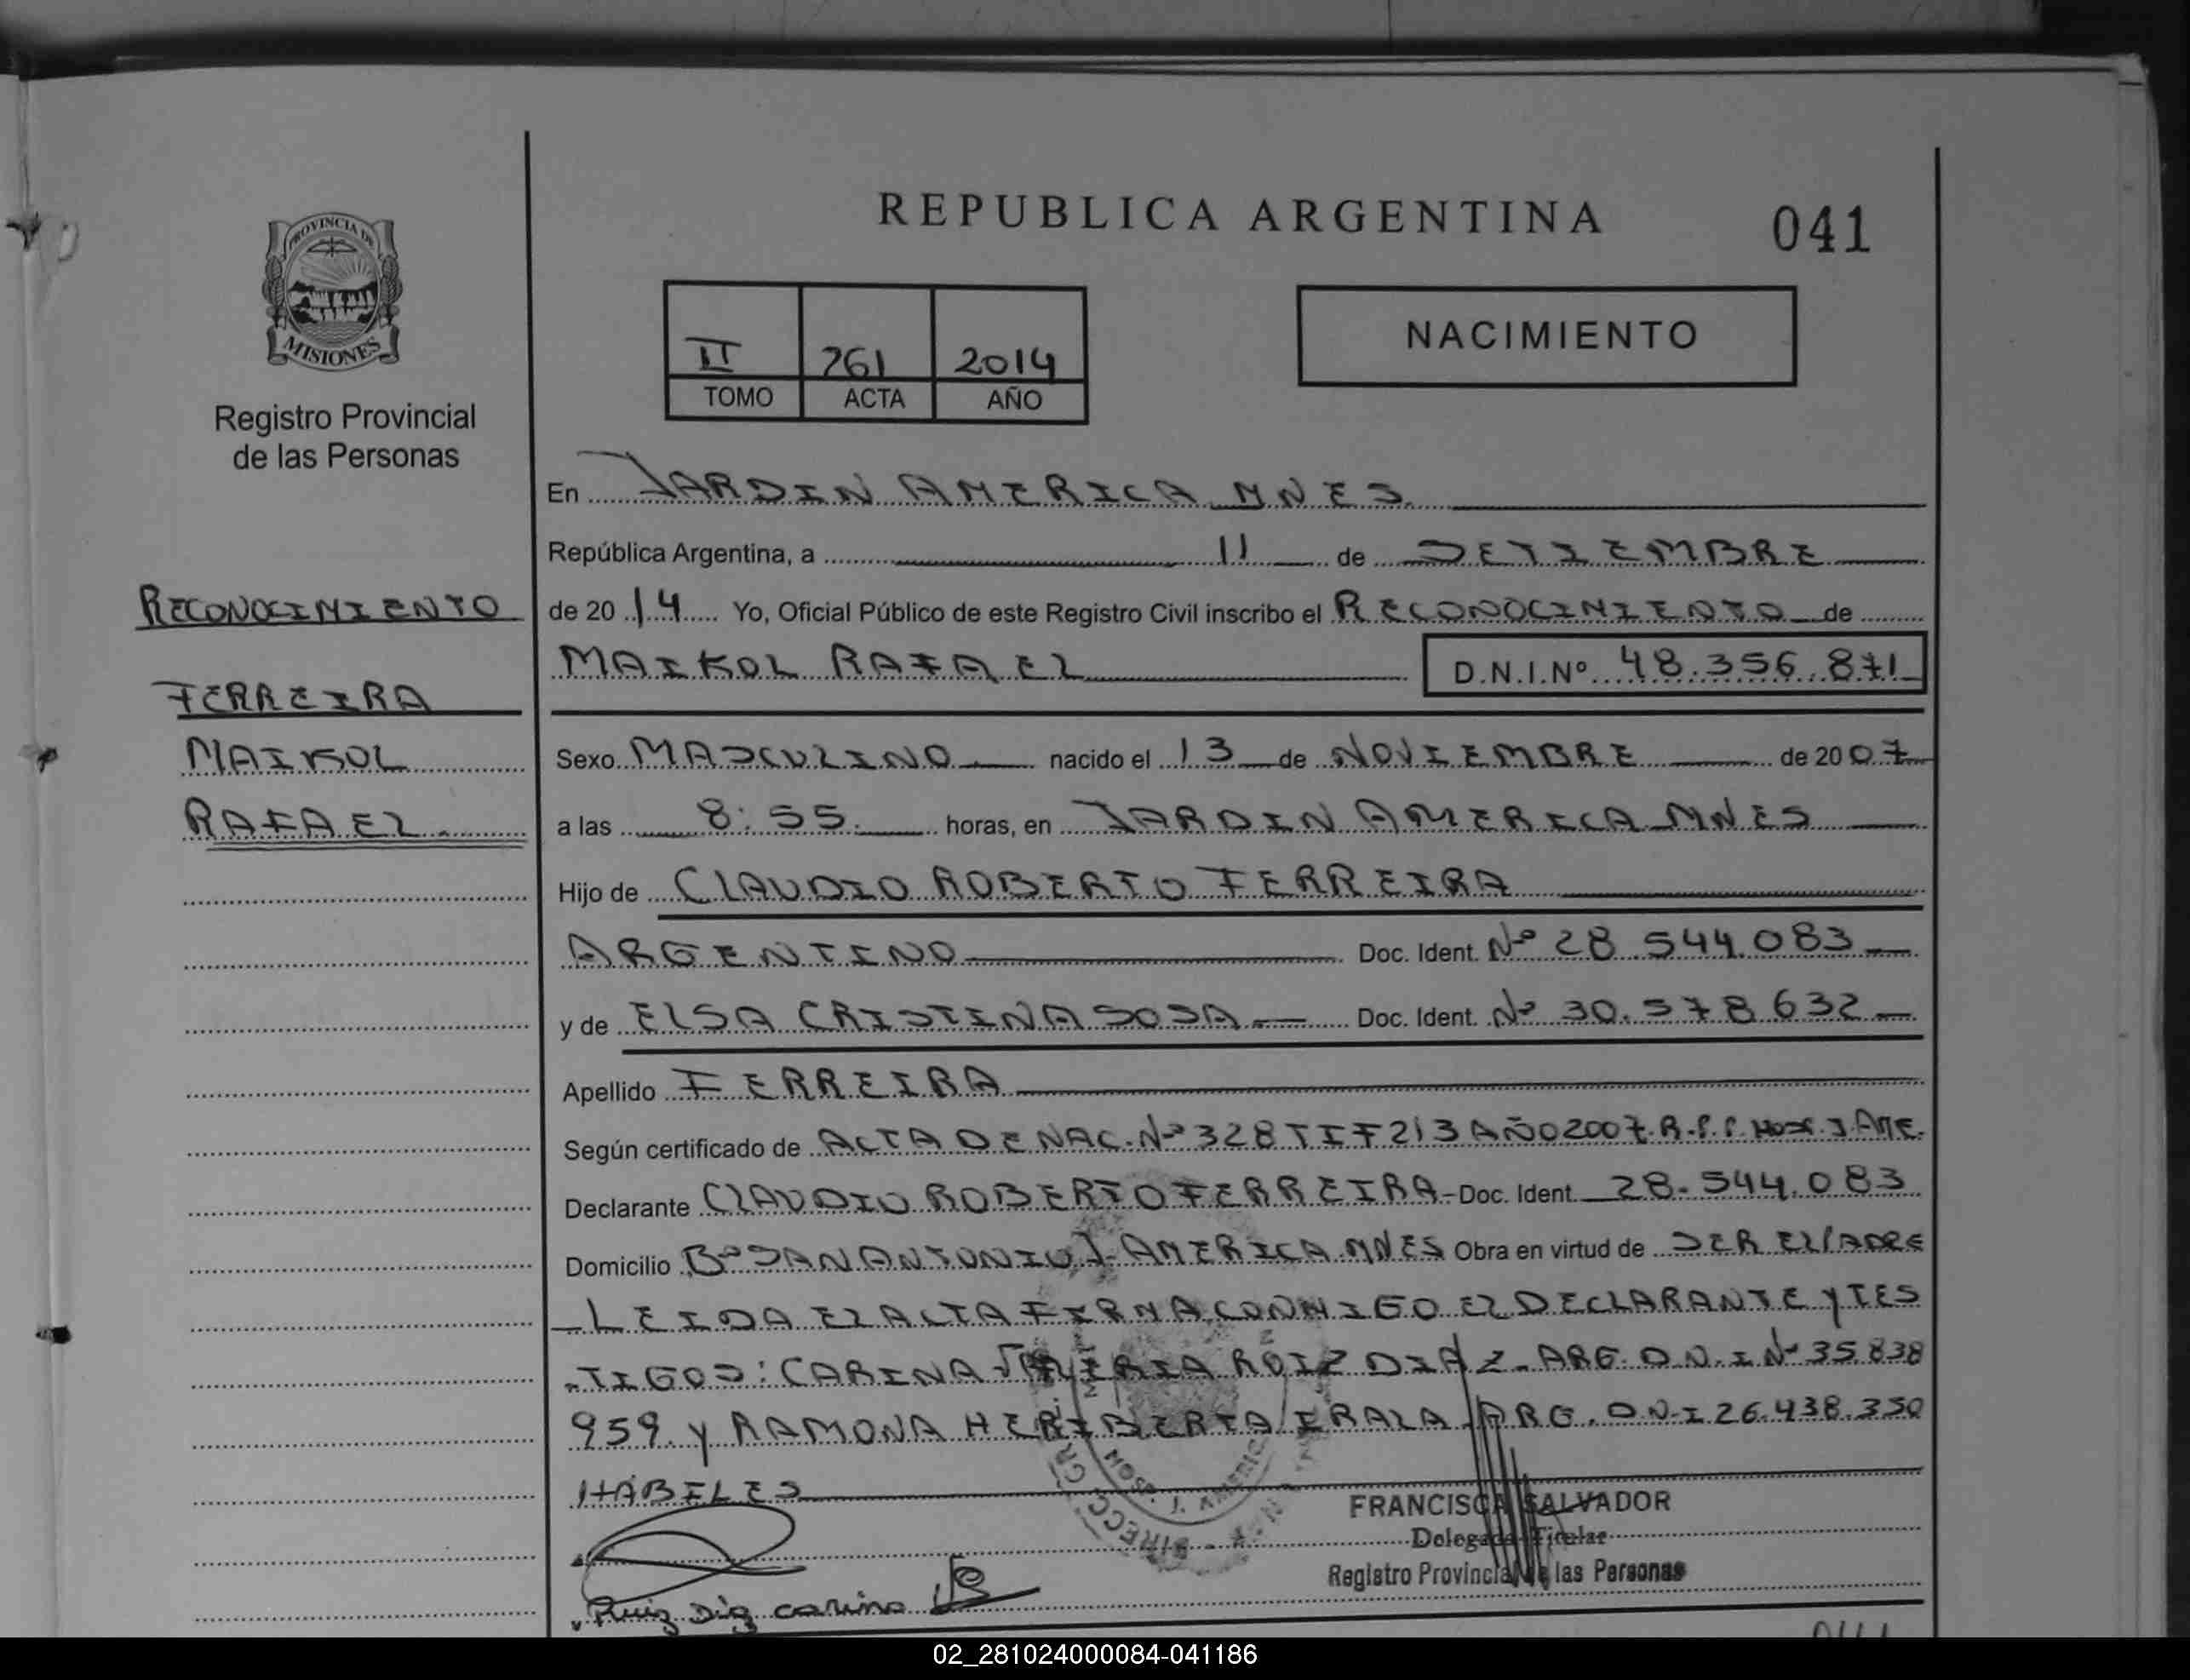 REPUBLICA ARGENTINA
041
PROVINCIA DE
MISIONES
Registro Provincial
de las Personas
II 761 2014
TOMO ACTA AÑO
NACIMIENTO
RECONOCIMIENTO
FERREIRA
MAIKOL
RAFAEL
En JARDIN AMERICA MNES
República Argentina, a 11 de SETIEMBRE
de 2014 Yo, Oficial Público de este Registro Civil inscribo el RECONOCIMIENTO de
MAIKOL RAFAEL D.N.I.Nº 48.356.871
Sexo MASCULINO nacido el 13 de NOVIEMBRE de 2007
a las 8:55 horas, en JARDIN AMERICA MNES
Hijo de CLAUDIO ROBERTO FERREIRA
ARGENTINO Doc. Ident. Nº 28.544.083
y de ELSA CRISTINA SOSA Doc. Ident. Nº 30.578.632
Apellido FERREIRA
Según certificado de ACTA DE NAC. Nº 328 T II F 213 AÑO 2007 R.P.P. J. AME.
Declarante CLAUDIO ROBERTO FERREIRA Doc. Ident. 28.544.083
Domicilio Bº SAN ANTONIO J. AMERICA MNES Obra en virtud de SER EL PADRE
LEIDA EL ACTA FIRMA CONMIGO EL DECLARANTE Y TES
TIGOS: CARINA ROIZ DIAZ - ARG. D.N.I Nº 35.838
959 y RAMONA HERIBERTA IRALA ARG. D.N.I 26.438.350
HABILES
FRANCISCA SALVADOR
Delegada Titular
Registro Provincial de las Personas
Ruiz Diaz carina
02_281024000084-041186